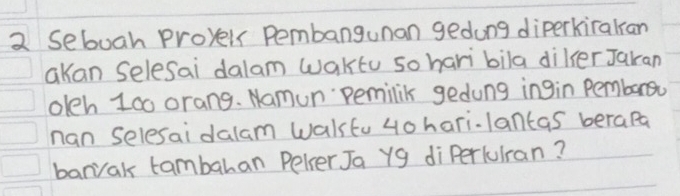 2 Sebuah Proyek Pembangunan gedung diperkirakan
akan selesai dalam waktu 50 hari bila dikerJakan
oleh 100 orang. Namun pemilik gedung ingin Pembangu
nan selesai dalam waktu 40 hari. lantas beraPa
banyak tambahan PekerJa yg diPerlukan?